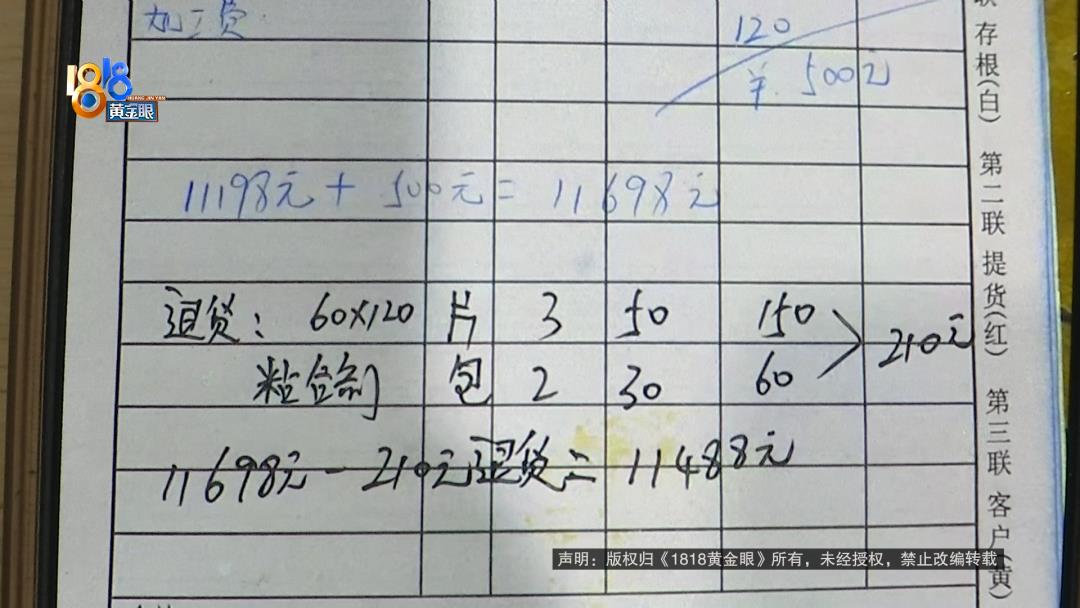 加工费 120
¥ 500元
1818
黄金眼
11198元 + 500元 = 11698元
退货: 60×120 片 3 50 150
210元
粘合剂 包 2 30 60
11698元 - 210元退货 = 11488元
联 存根(白) 第二联 提货(红) 第三联 客户(黄)
声明：版权归《1818黄金眼》所有，未经授权，禁止改编转载